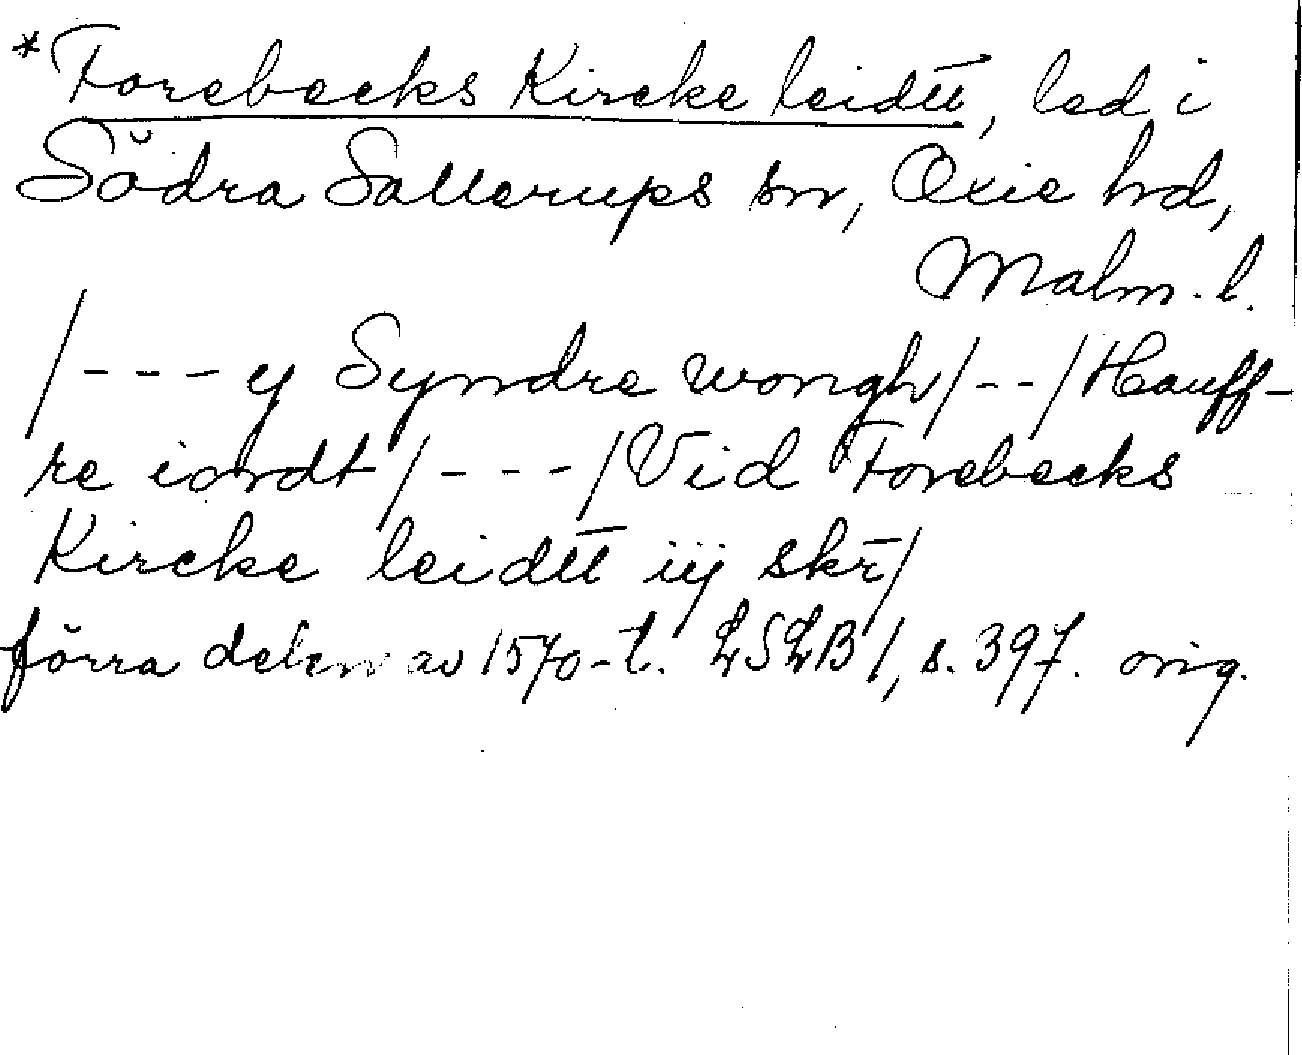 *Forebecks Kircke leidtt̄, led i
Södra Sallerups sn, Oxie hd,
Malm. l.
/---y Syndre wongh/--/Hauff-
re iordt/---/Vid Forebecks
Kircke leidtt̄ iij skr̄/
förra delen av 1570-t. LSLB 1, s. 397. orig.